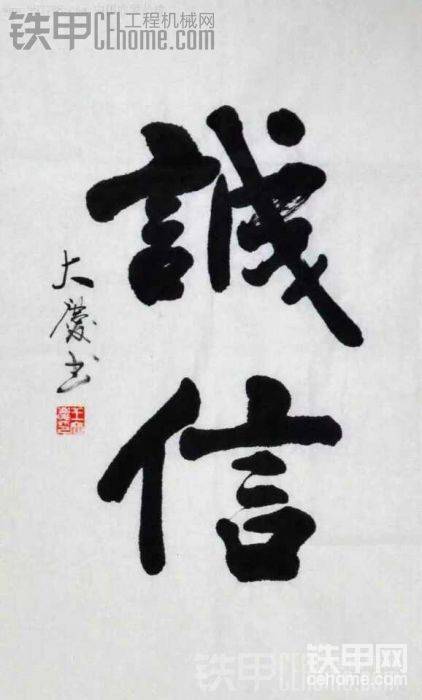 铁甲 工程机械网
CEhome.com
誠
信
大慶书
铁甲网
cehome.com
铁甲CEhome.com